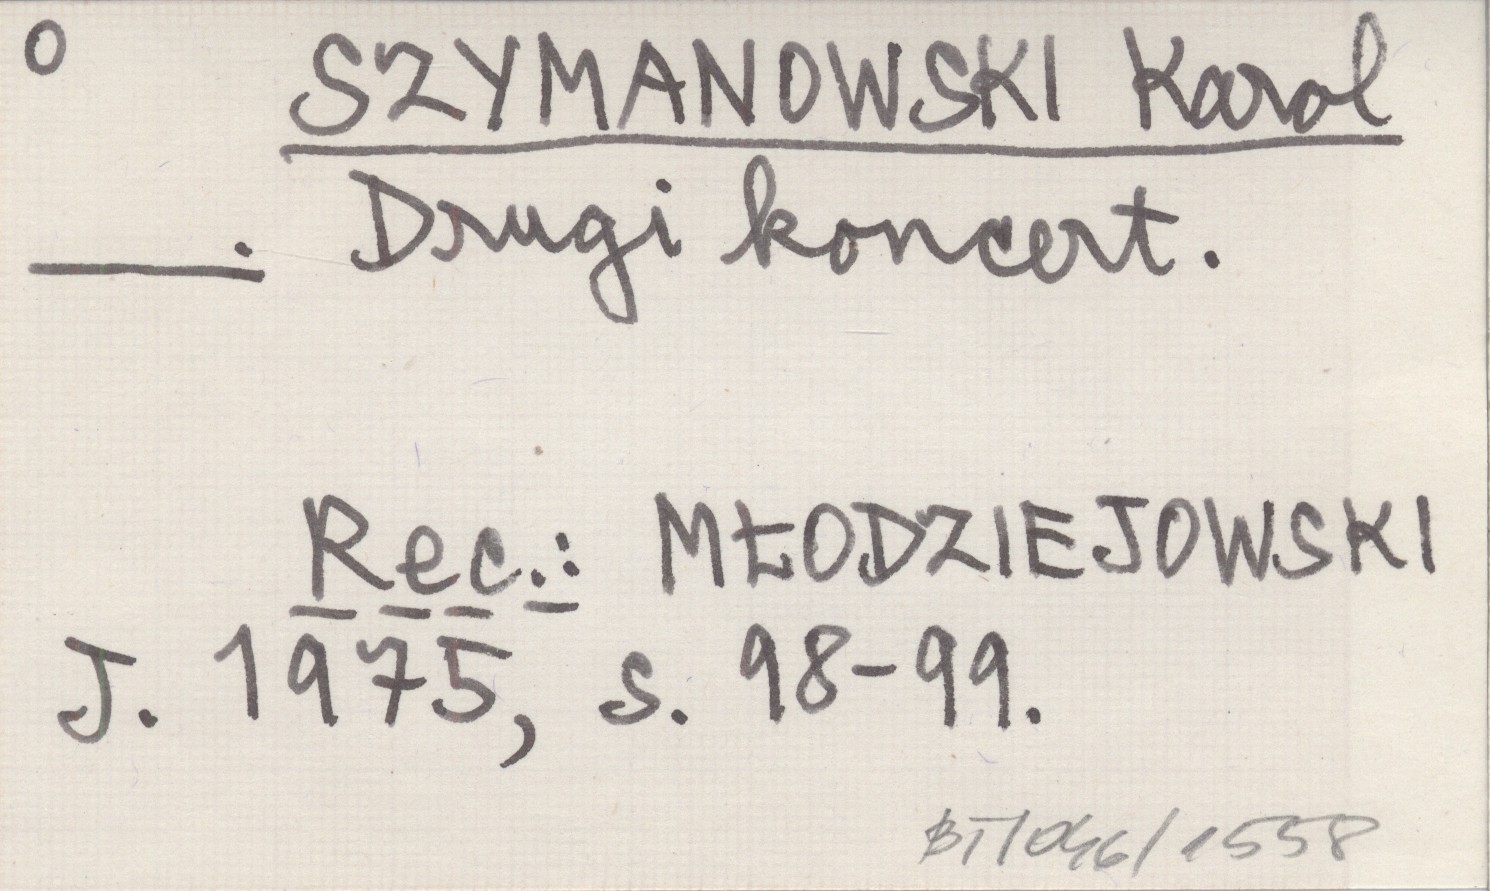 o SZYMANOWSKI Karol
____. Drugi koncert.
Rec.: MŁODZIEJOWSKI
J. 1975, s. 98-99.
BT/046/1558